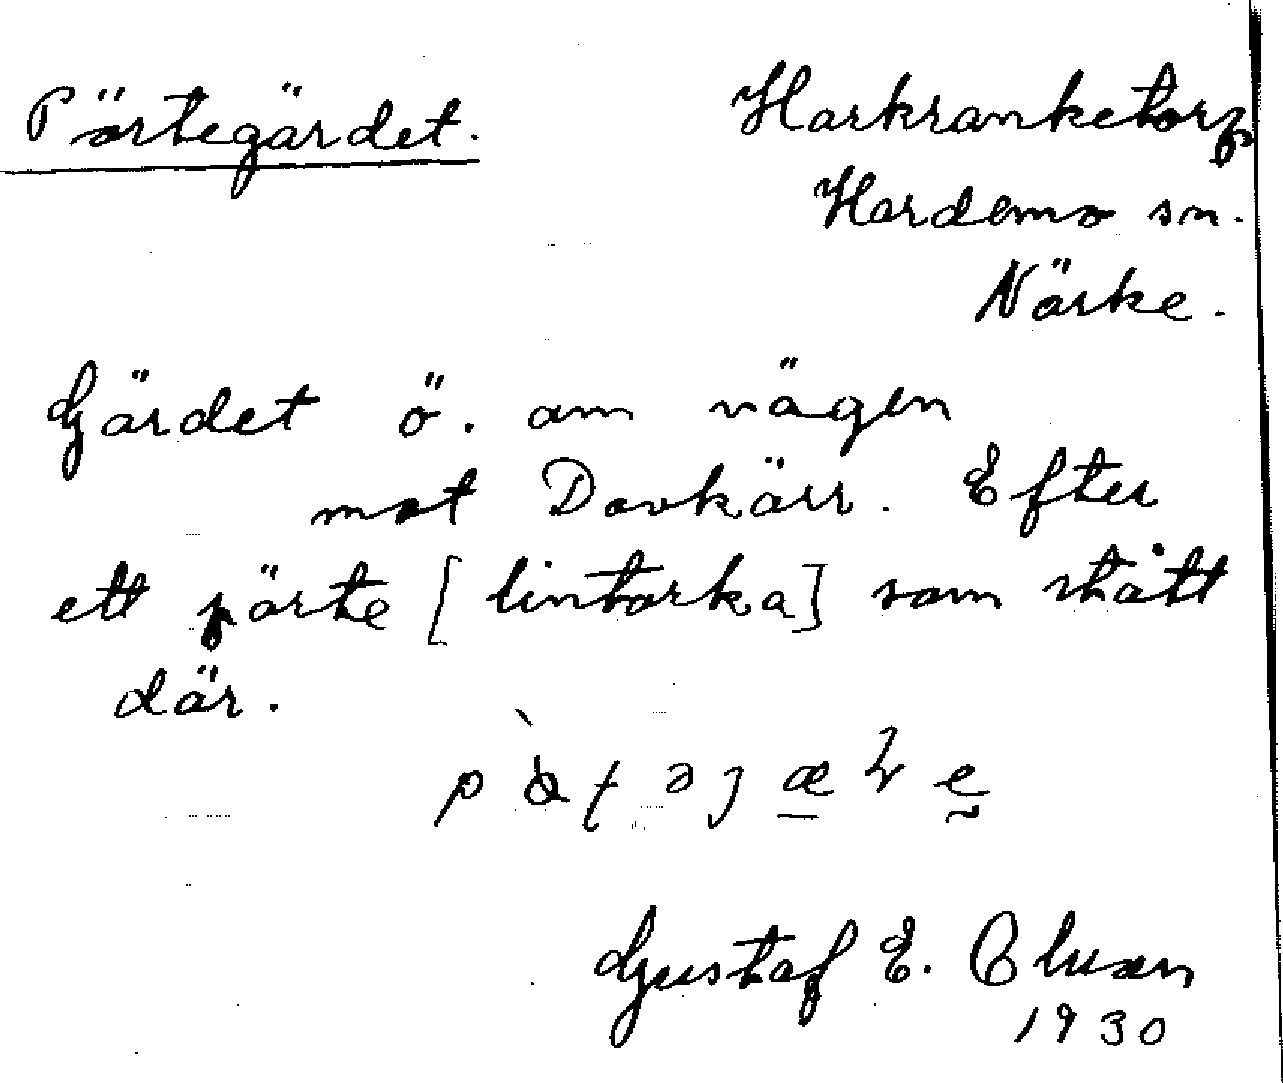 Pörtegärdet.
Harkranketorp
Hardemo sn.
Närke.
Gärdet ö. om vägen
mot Dovkärr. Efter
ett pörte [lintorka] som stått
där.
Gustaf E.
1930